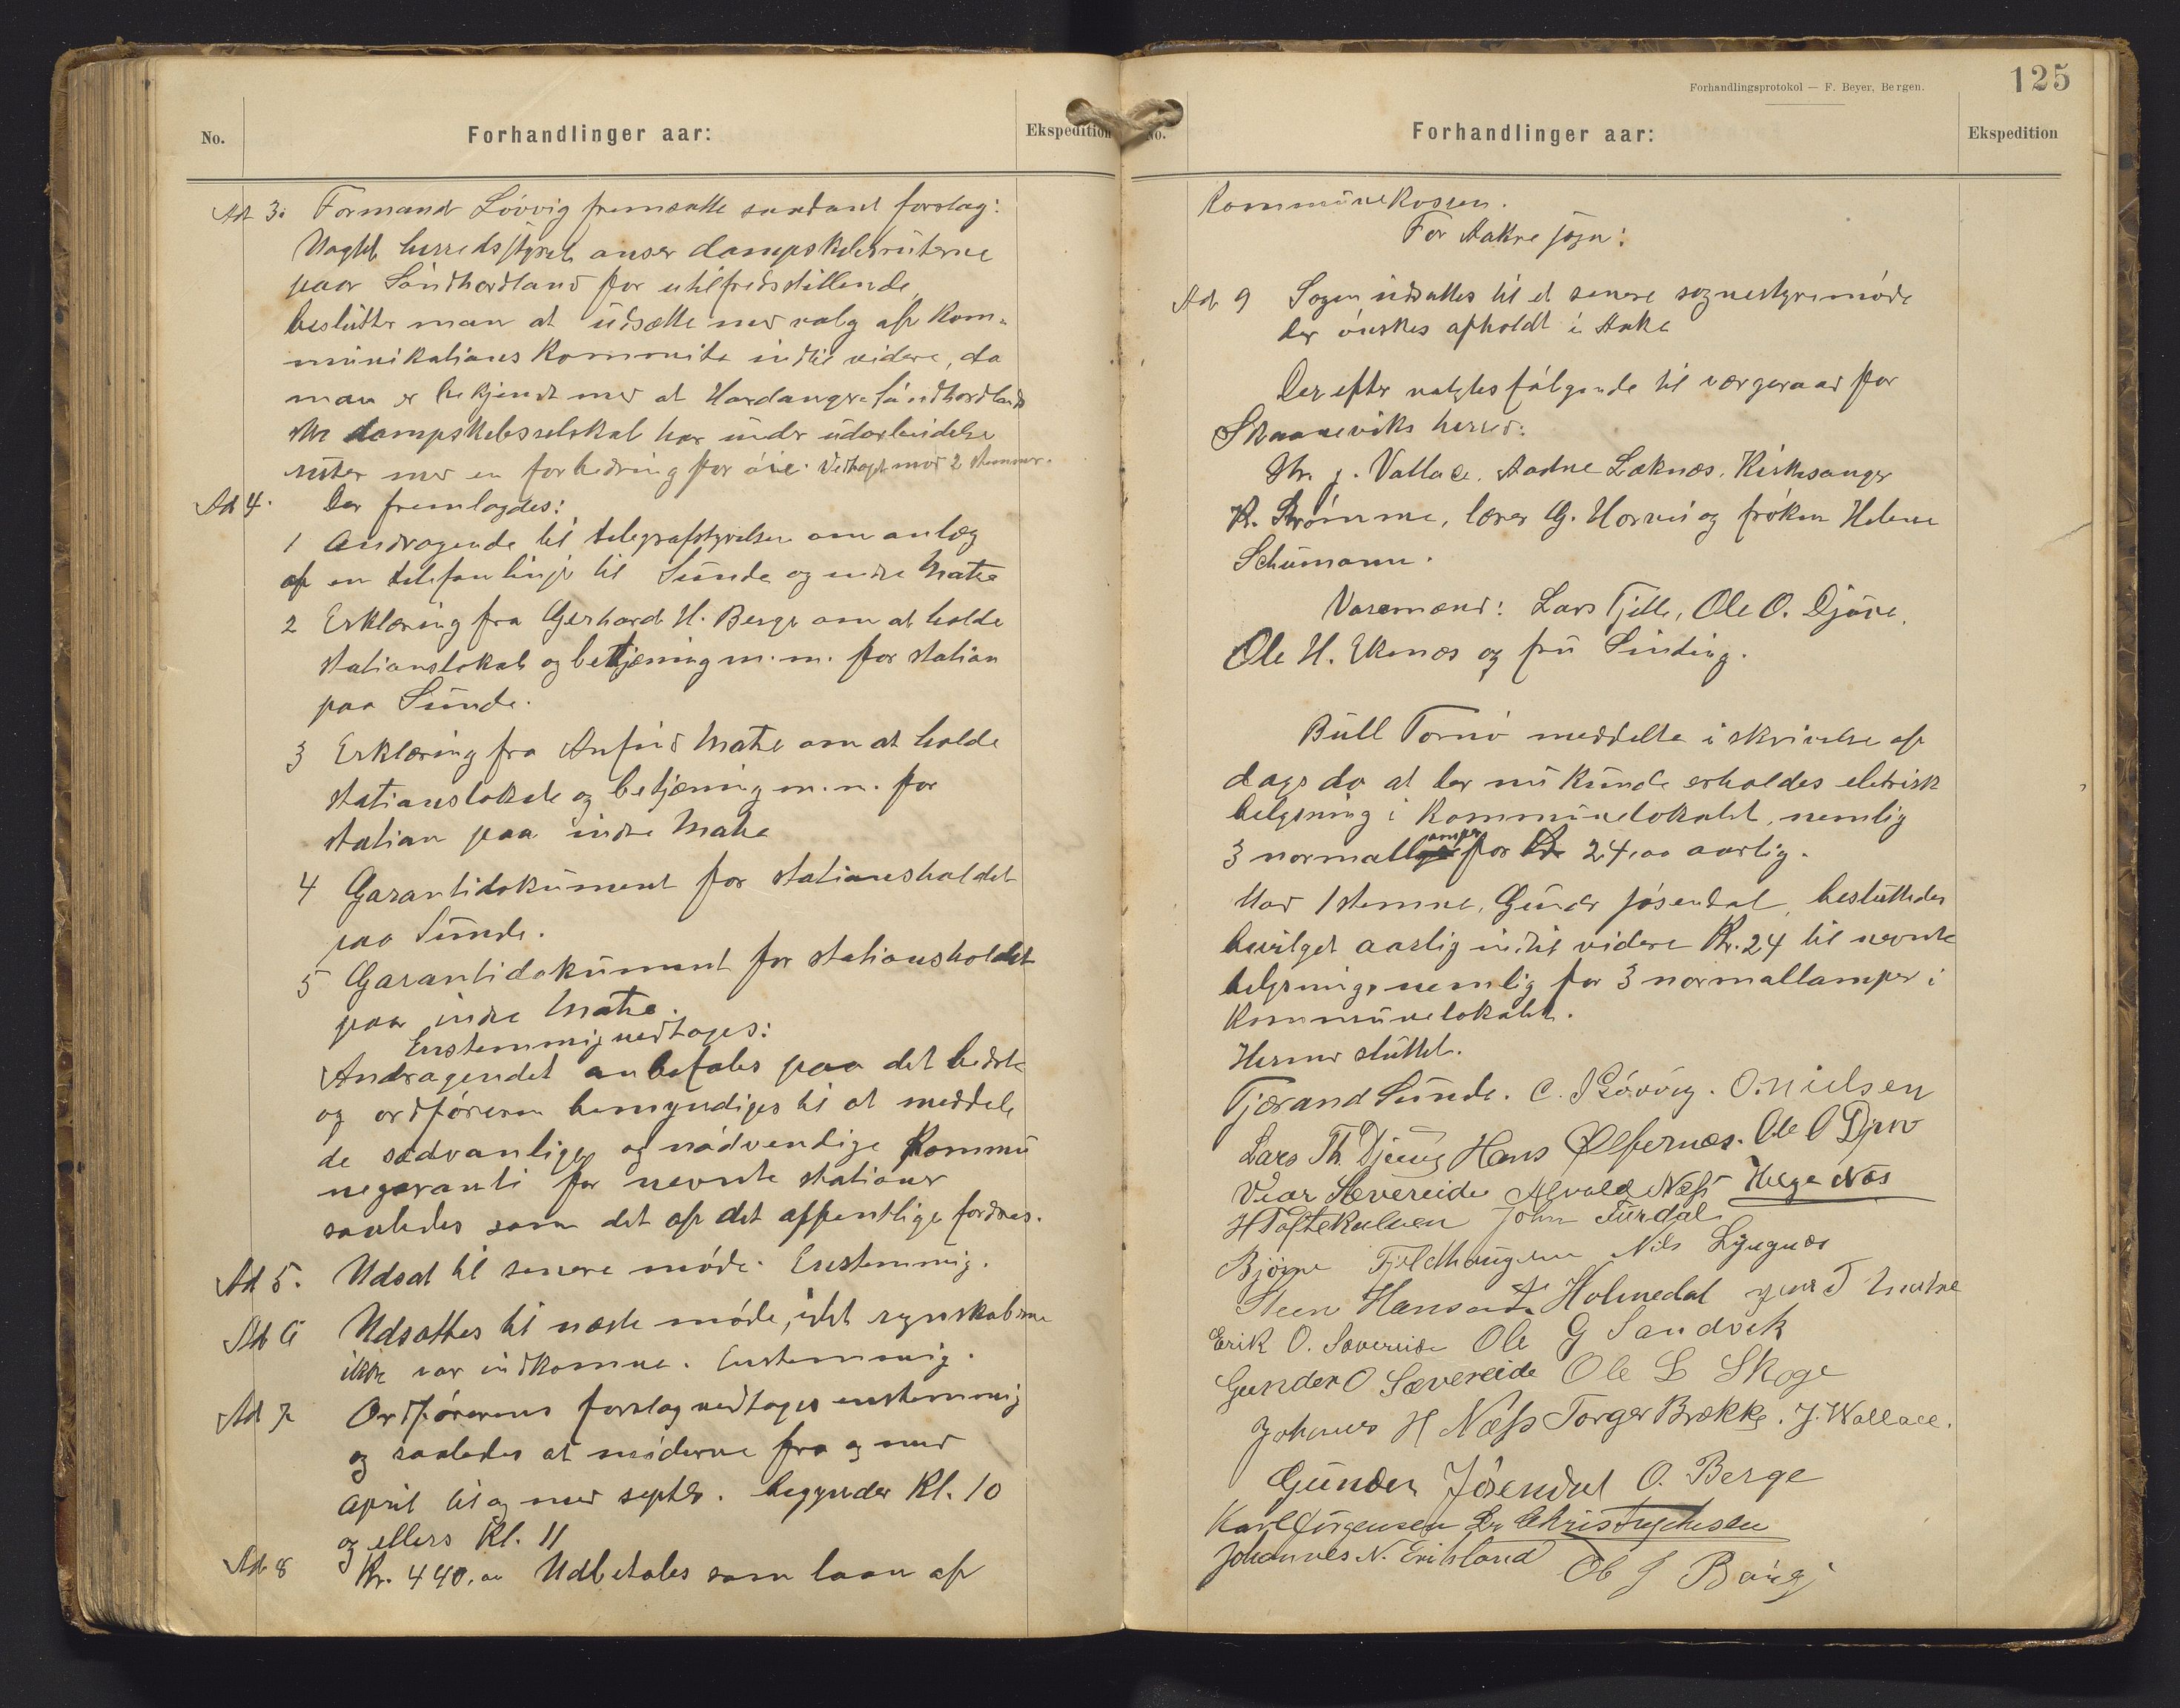 No.
Forhandlinger aar:
Ekspedition
Ad 3. Formand Lövvig fremsatte saadant forslag:
Uagtet herredsstyret anser dampskibsruterne
paa Söndhordland for utilfredsstillende,
beslutter man at udsætte med valg af kom-
munikations kommite indtil videre, da
man er bekjendt med at Hardanger Söndhordlands
ske dampskibsselskab har under udarbeidelse
ruter med en forbedring for öie. Vedtaget mod 2 stemmer.
Ad 4. Der fremlagdes:
1 Andragende til telegrafstyrelsen om anlæg
af en telefonlinje til Sunde og indre Matre
2 Erklæring fra Gerhard H. Berge om at holde
stationslokale og betjæning m.m. for station
paa Sunde.
3 Erklæring fra Anfind Matre om at holde
stationslokale og betjæning m.m. for
station paa indre Matre
4 Garantidokument for stationsholdet
paa Sunde.
5 Garantidokument for stationsholdet
paa indre Matre.
Enstemmig vedtoges:
Andragendet anbefales paa det bedste
og ordföreren bemyndiges til at meddele
de sædvanlige og nödvendige kommu
negaranti for nevnte stationer
saaledes som det af det offentlige fordres.
Ad 5. Udsat til senere möde. Enstemmig.
Ad 6 Udsattes til næste möde, idet regnskaberne
ikke var indkomne. Enstemmig.
Ad 7 Ordförerens forslag vedtoges enstemmig
og saaledes at möderne fra og med
April til og med septbr. begynder Kl. 10
og ellers Kl. 11
Ad 8 Kr. 440,00 Udbetales som laan af
Forhandlingsprotokol — F. Beyer, Bergen.
125
No.
Forhandlinger aar:
Ekspedition
Kommunekassen.
For Aakre sogn:
Ad 9 Sagen udsattes til et senere sognestyremöde
der önskes afholdt i Aakre
Derefter valgtes fölgende til værgeraad for
Skaaneviks herred:
Hr. J. Vallace. Aadne Læknæs. Kirkesanger
K. Strömme, lærer G. Horvei og fröken Helene
Schumann.
Varamænd: Lars Fjelle, Ole O. Djöve,
Ole H. Ekenæs og fru Sinding.
Bull Tornö meddelte i skrivelse af
dags do at der nu kunde erholdes eletrisk
belysning i kommunelokalet, nemlig
3 normallamper for 24,00 aarlig.
Mod 1 stemme, Gunder Jösendal, besluttedes
bevilget aarlig indtil videre Kr. 24 til nevnte
belysning, nemlig for 3 normallamper i
Kommunelokalet.
Hermed sluttet.
Tjærand Sunde. C. Lövvig. O. Nielsen
Lars Th. Djuvs Hans Ølfernæs. Ole O Djuv
Vear Sævereide Alvald Næss Helge Nös
H Toftekalven John Furdal
Björne Fjeldhaugen Nils Lyngnæs
Steen Hansen Holmedal T Matre
Erik O. Sævereide Ole G Sandvik
Gunder O Sævereide Ole L Skoge
Johannes H Næss Torger Brække. J. Wallace.
Gunder Jösendal O. Berge
Karl Jörgensen Christophersen
Johannes N. Eriksland Ole J